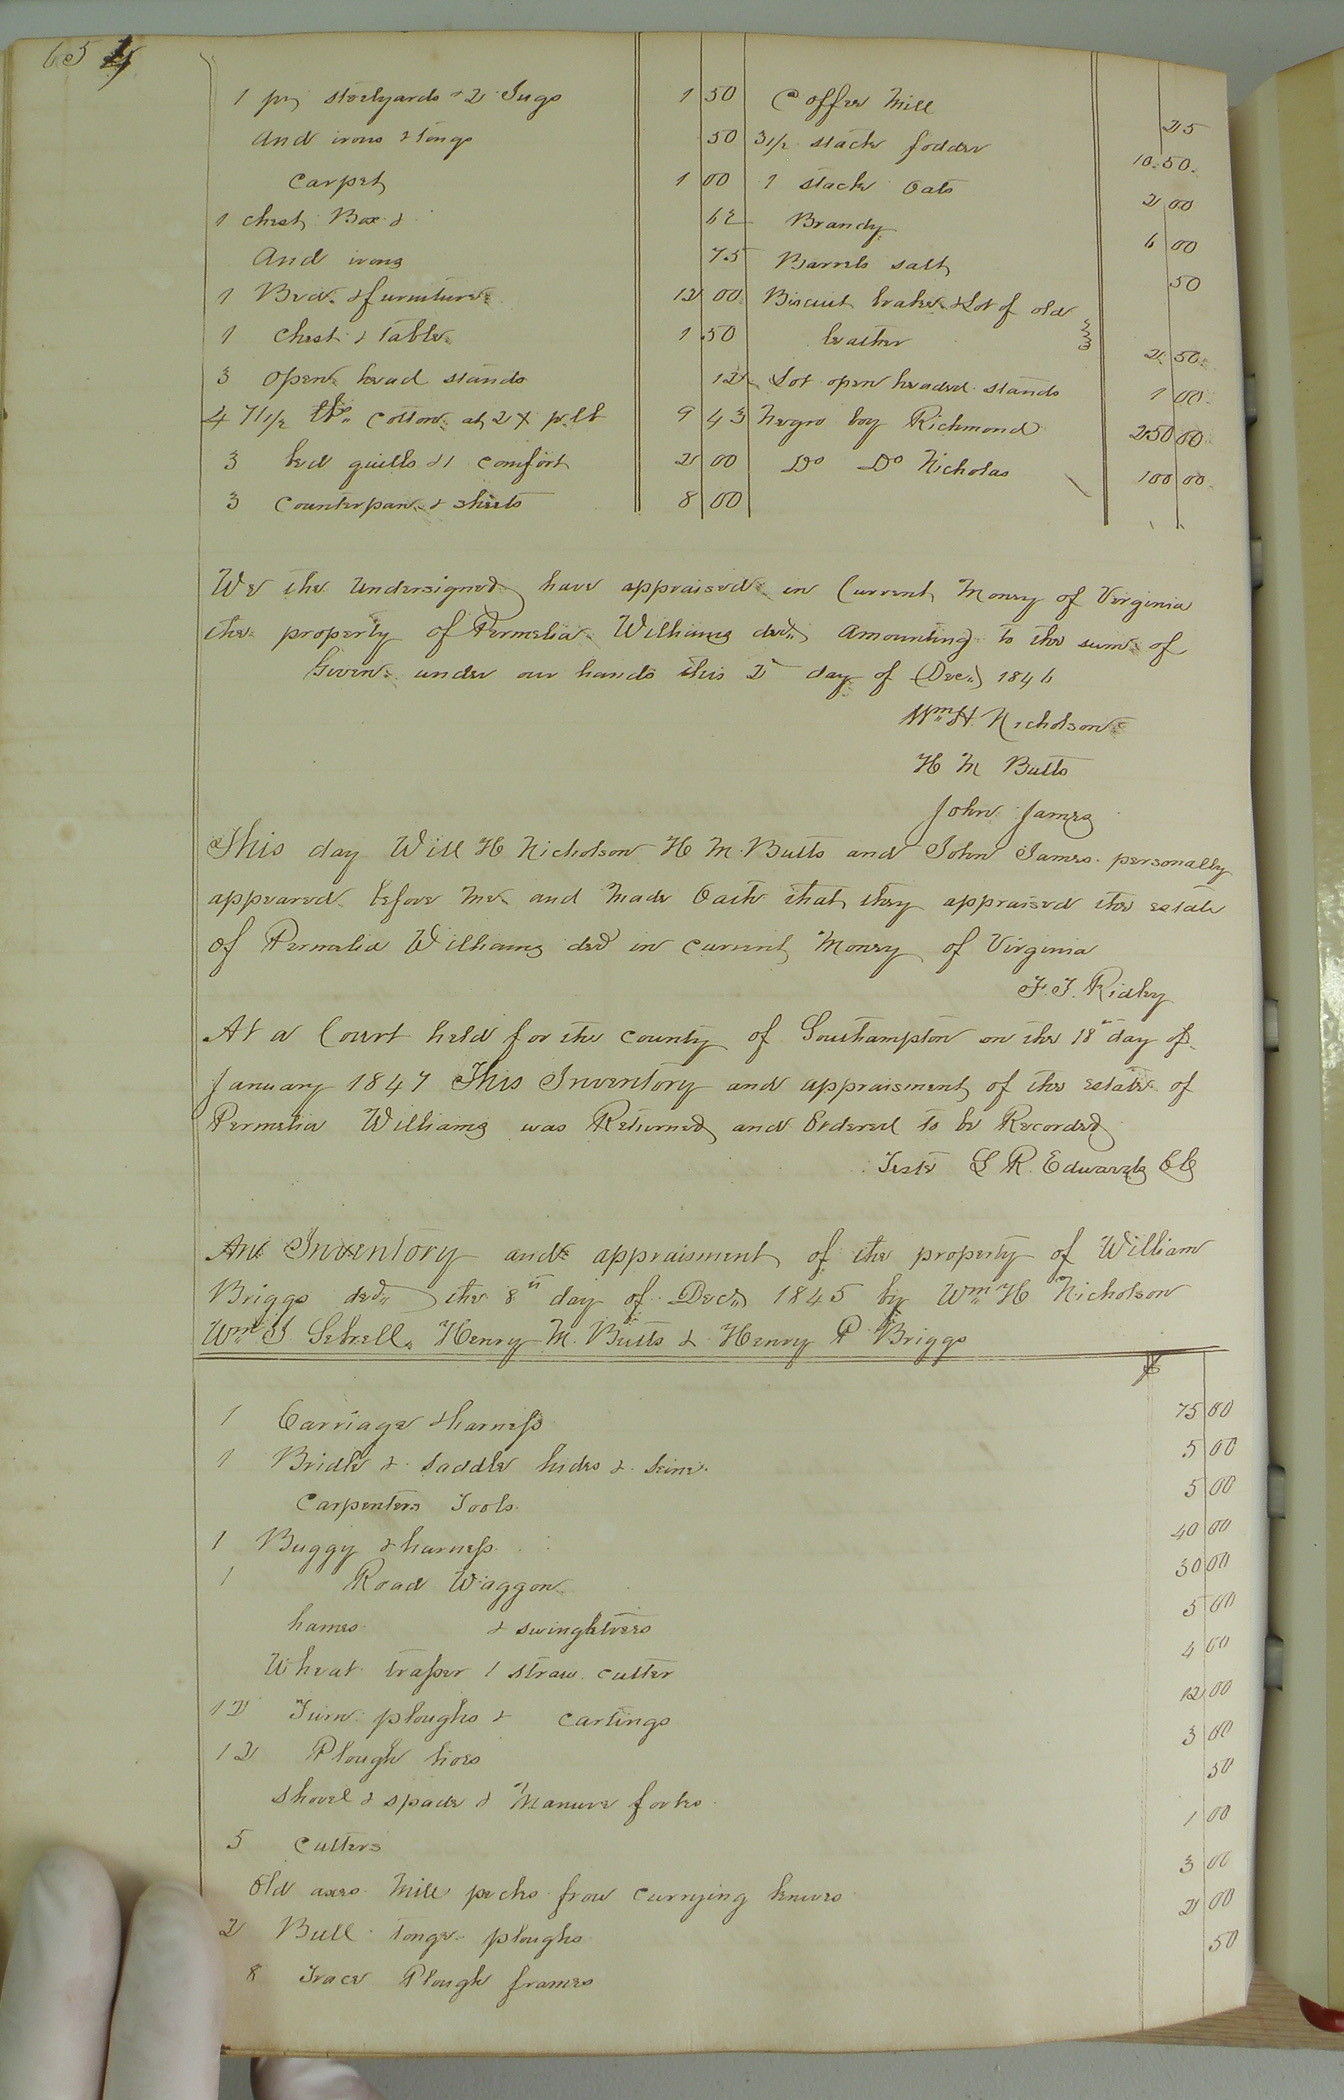 654
1 pr steelyards & 2 Jugs 1 50
And irons & tongs 50
Carpet 1 00
1 chest Box & 62
And irons 75
1 Bed & furniture 12 00
1 Chest & table 1 50
3 open head stands 12
471½ lbs Cotton at 2 pr lb 9 43
3 bed quilts & 1 comfort 2 00
3 Counterpan & sheets 8 00
Coffee Mill 25
3½ stack fodder 10.50
1 stack Oats 2 00
Brandy 6 00
Barrels salt 50
Biscuit brake & Lot of old
leather 2 50
Lot open headed stands 1 00
Negro boy Richmond 250 00
Do Do Nicholas 100 00
We the undersigned have appraised in Current Money of Virginia
the property of Permelia Williams decd Amounting to the sum of
Given under our hands this 2 day of (Dec) 1846
Wm H Nicholson
H M Butts
John James
This day Will H Nicholson H M. Butts and John James personally
appeared before me and Made Oath that they appraised the estate
of Permelia Williams decd in current Money of Virginia
F. J. Ridley
At a Court held for the county of Southampton on the 18th day of
January 1847 This Inventory and appraisment of the estate of
Permelia Williams was Returned and Ordered to be Recorded
Teste L R. Edwards CC
An Inventory and appraisment of the property of William
Briggs decd the 8th day of Decr 1845 by Wm H Nicholson
Wm J Sebrell, Henry M. Butts & Henry P Briggs
$
1 Carriage & harness 75 00
1 Bridle & saddle hides & seine 5 00
Carpenters Tools 5 00
1 Buggy & harness 40 00
1 Road Waggon 30 00
hames & swingletrees 5 00
Wheat 1 straw cutter 4 00
12 Turn ploughs & castings 12 00
12 Plough hoes 3 00
Shovel & spade & Manure forks 50
5 Cutters 1 00
Old axes Mill pecks frow currying knives 3 00
2 Bull tonge ploughs 2 00
8 Trace Plough frames 50